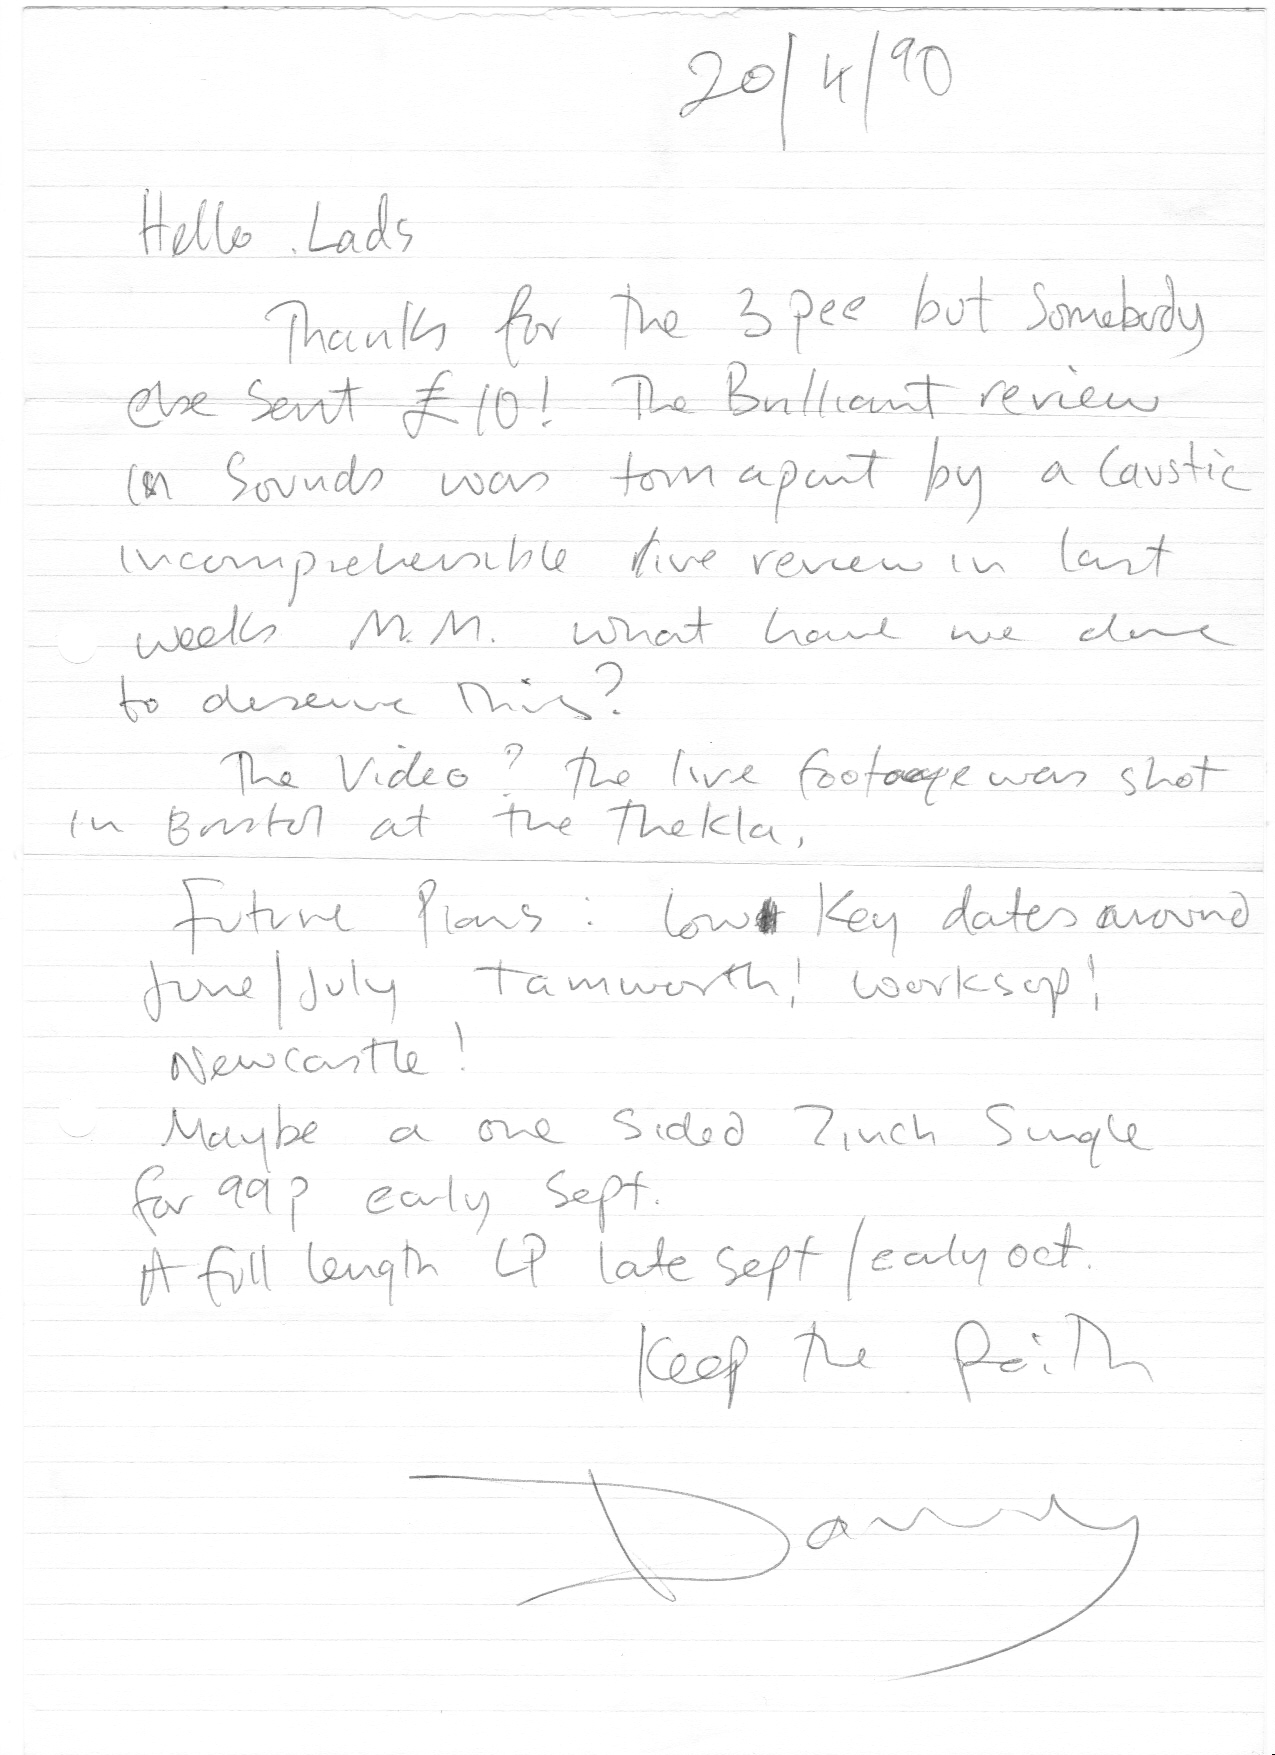 20/4/90
Hello Lads
Thanks for the 3 pee but Somebody
else Sent £10! The Brilliant review
in Sounds was torn apart by a Caustic
incomprehensible live review in last
weeks M.M. what have we done
to deserve this?
The Video? the live footage was shot
in Bristol at the Thekla,
Future Plans: low Key dates around
June/July Tamworth! worksop!
Newcastle!
Maybe a one Sided 7inch Single
for 99p early Sept.
A full length LP late Sept/early oct.
Keep the faith
Danny